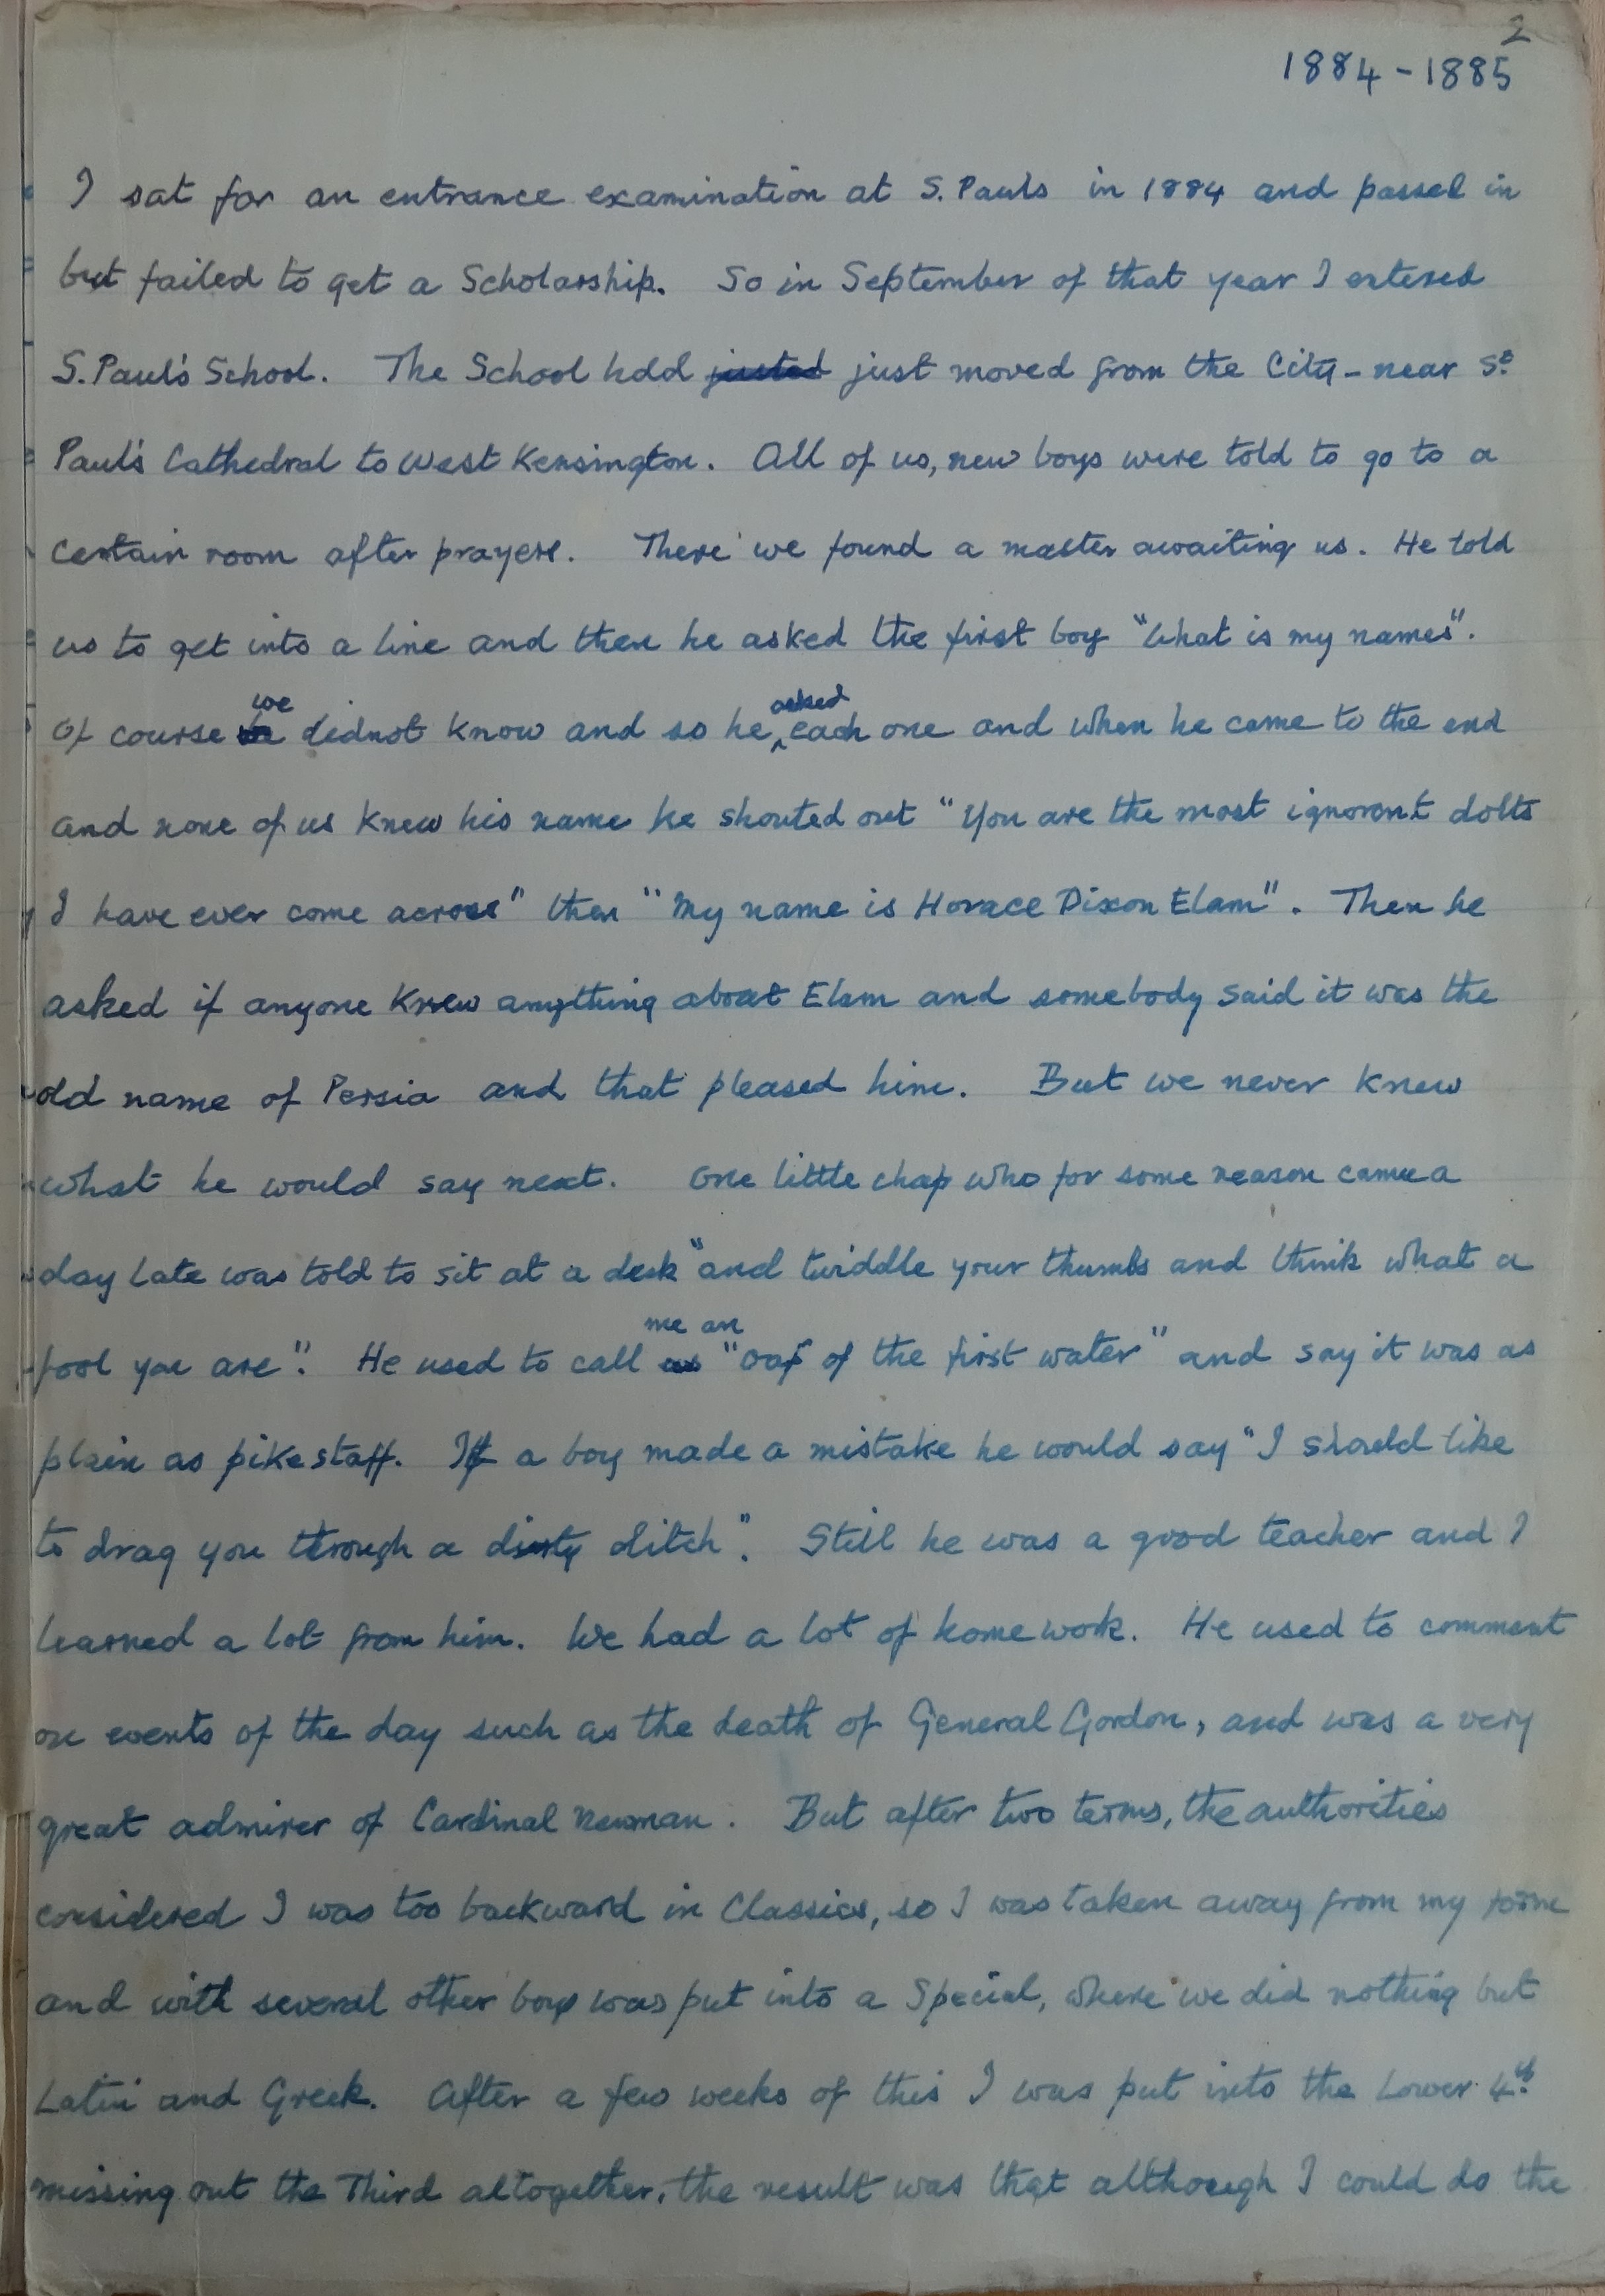 2
1884 - 1885
I sat for an entrance examination at S. Pauls in 1884 and passed in
but failed to get a Scholarship. So in September of that year I entered
S. Paul's School. The School hdd justed just moved from the City - near St
Paul's Cathedral to West Kensington. All of us, new boys were told to go to a
certain room after prayers. There we found a master awaiting us. He told
us to get into a line and then he asked the first boy "What is my names".
we asked
Of course did not know and so he each one and when he came to the end
and none of us knew his name he shouted out "You are the most ignorant dolts
I have ever come across" then "My name is Horace Dixon Elam". Then he
asked if anyone knew anything about Elam and somebody said it was the
old name of Persia and that pleased him. But we never knew
what he would say next. One little chap who for some reason came a
day late was told to sit at a desk "and twiddle your thumbs and think what a
me an
fool you are". He used to call us "oaf of the first water" and say it was as
plain as pikestaff. If a boy made a mistake he would say "I should like
to drag you through a dirty ditch". Still he was a good teacher and I
learned a lot from him. We had a lot of home work. He used to comment
on events of the day such as the death of General Gordon, and was a very
great admirer of Cardinal Newman. But after two terms, the authorities
considered I was too backward in Classics, so I was taken away from my form
and with several other boys was put into a Special, where we did nothing but
Latin and Greek. After a few weeks of this I was put into the Lower 4th
missing out the Third altogether, the result was that although I could do the